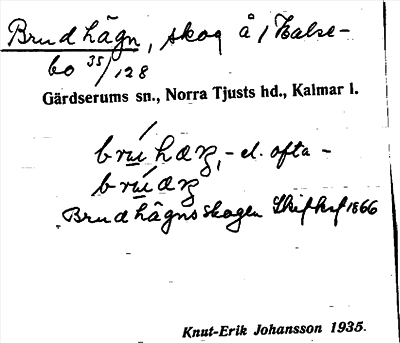 Brudhägn, skog å /Kalse-
bo 35/128
Gärdserums sn., Norra Tjusts hd., Kalmar l.
brúhæŋ, - el. ofta -
brúæŋ
Brudhägnsskogen Skifhsf 1866
Knut-Erik Johansson 1935.